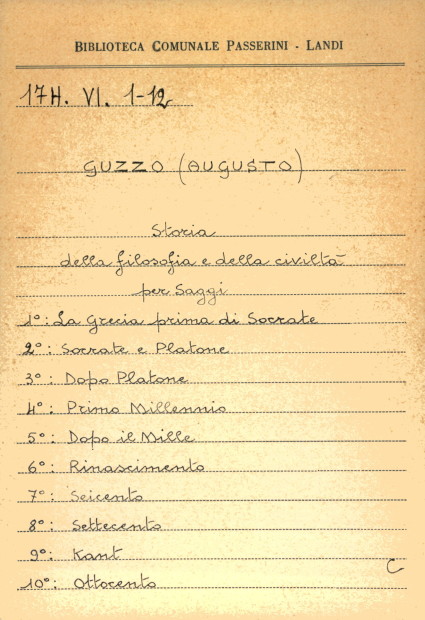 BIBLIOTECA COMUNALE PASSERINI - LANDI
17H. VI. 1-12
GUZZO (AUGUSTO)
Storia
della filosofia e della civiltà
per Saggi
1º: La Grecia prima di Socrate
2º: Socrate e Platone
3º: Dopo Platone
4º: Primo Millennio
5º: Dopo il Mille
6º: Rinascimento
7º: Seicento
8º: Settecento
9º: Kant
C
10º: Ottocento